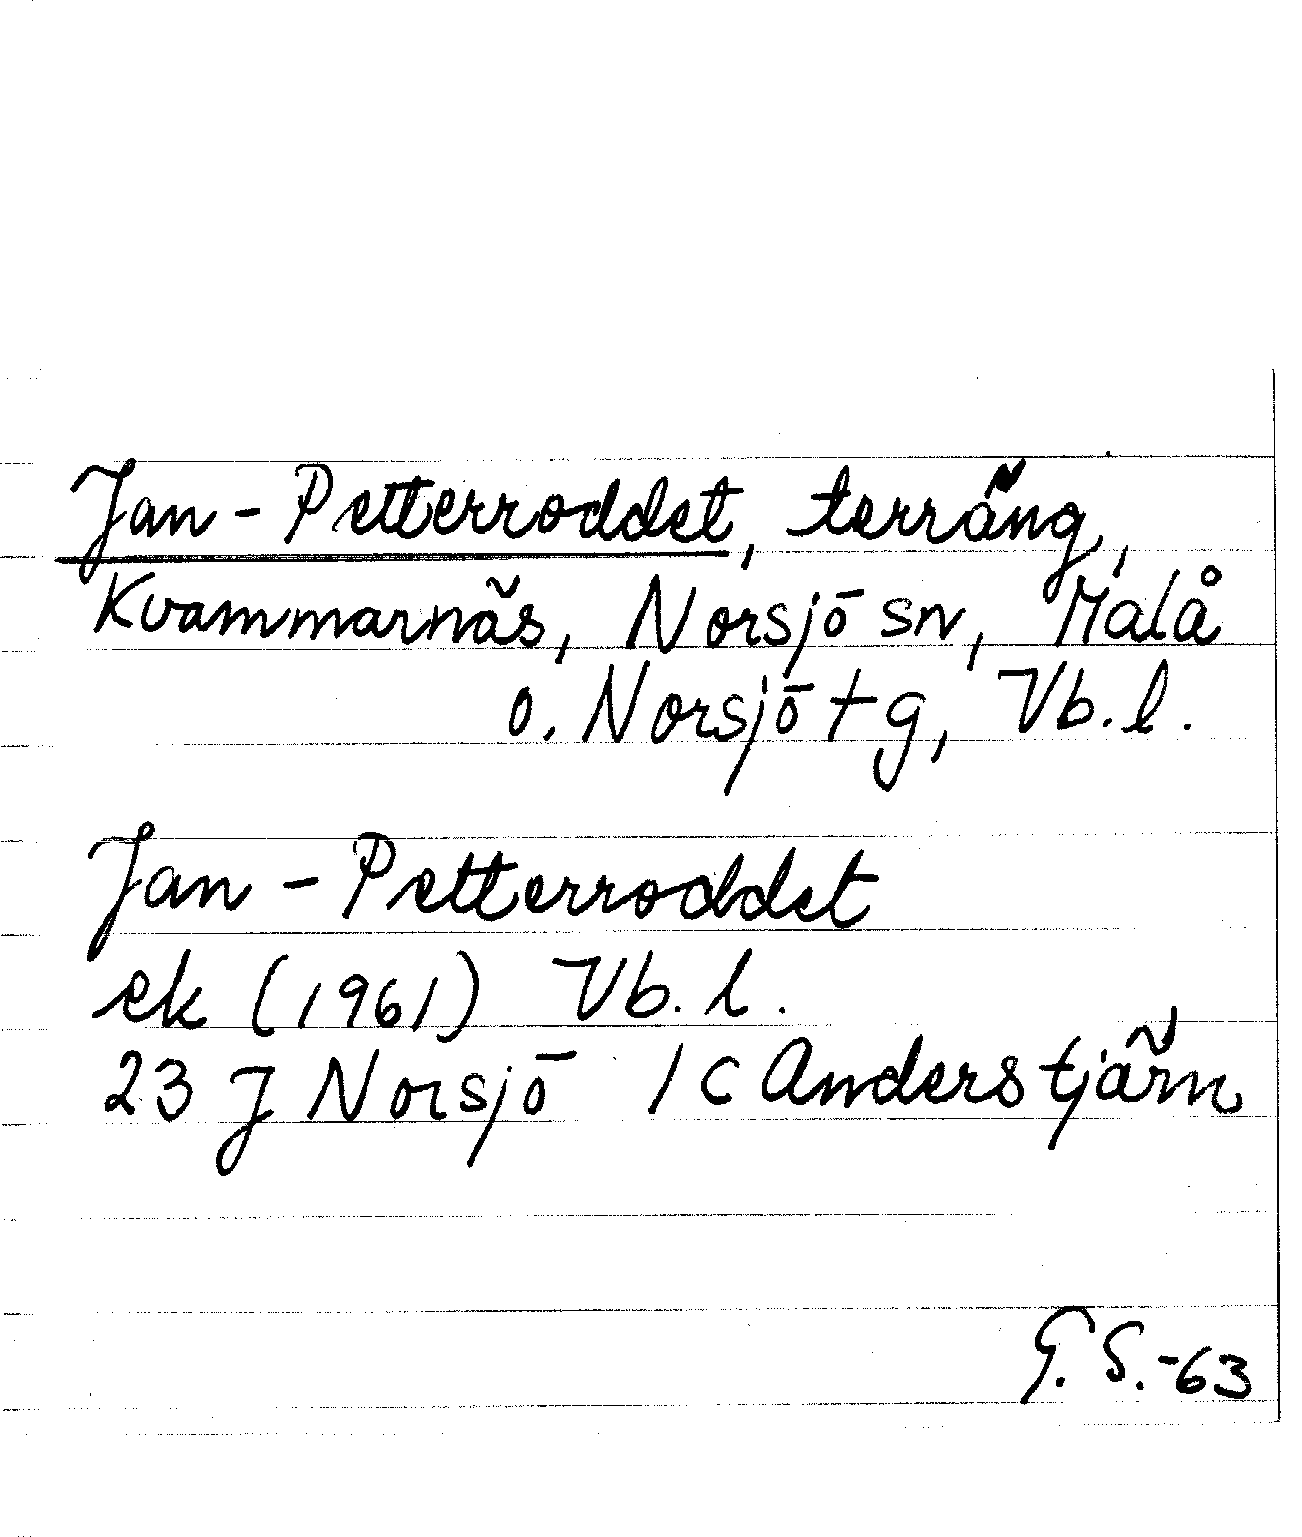 Jan-Petterroddet, terräng,
Kvammarnäs, Norsjö sn, Malå
o. Norsjö tg, Vb. l.
Jan-Petterroddet
ek (1961) Vb. l.
23 J Norsjö 1 c Anderstjärn
G. S.-63